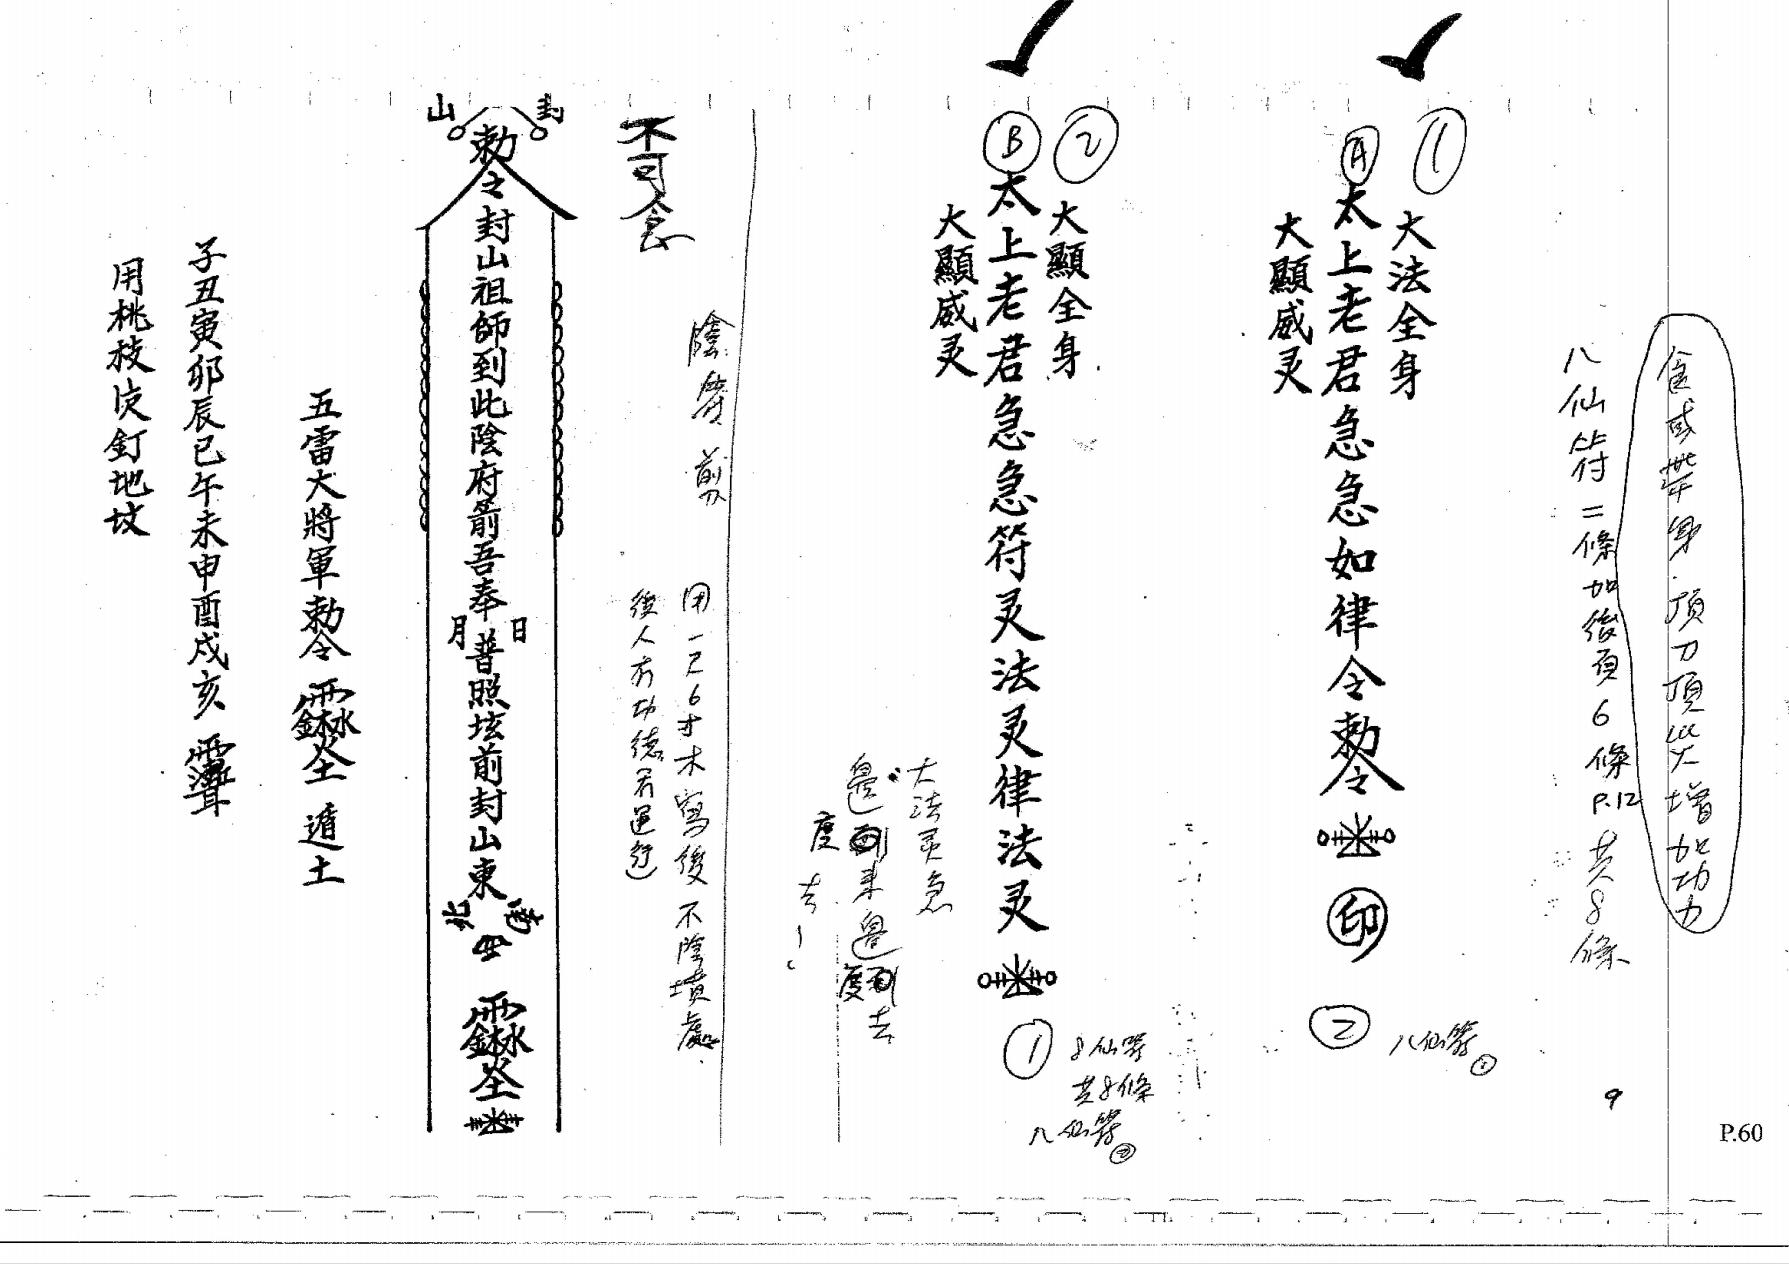 食或帶身.頂刀頂火增加功力
八仙符=條加後頁6條P.12共8條
9
P.60
①
Ⓐ
大法全身
太上老君急急如律令勅令
大顯威灵
印
②
八仙符①
②
Ⓑ
大顯全身
太上老君急急符灵法灵律法灵
大顯威灵
①
8仙符
共8條
八仙符②
大法灵急
度去
不可食
用一尺6寸木寫後不陰墳處.
後人有功德君運行
封山
勅令封山祖師到此陰府箭吾奉日月普照坟前封山東南西北
五雷大將軍勅令
遁土
子丑寅卯辰巳午未申酉戌亥
用桃枝皮釘地坟